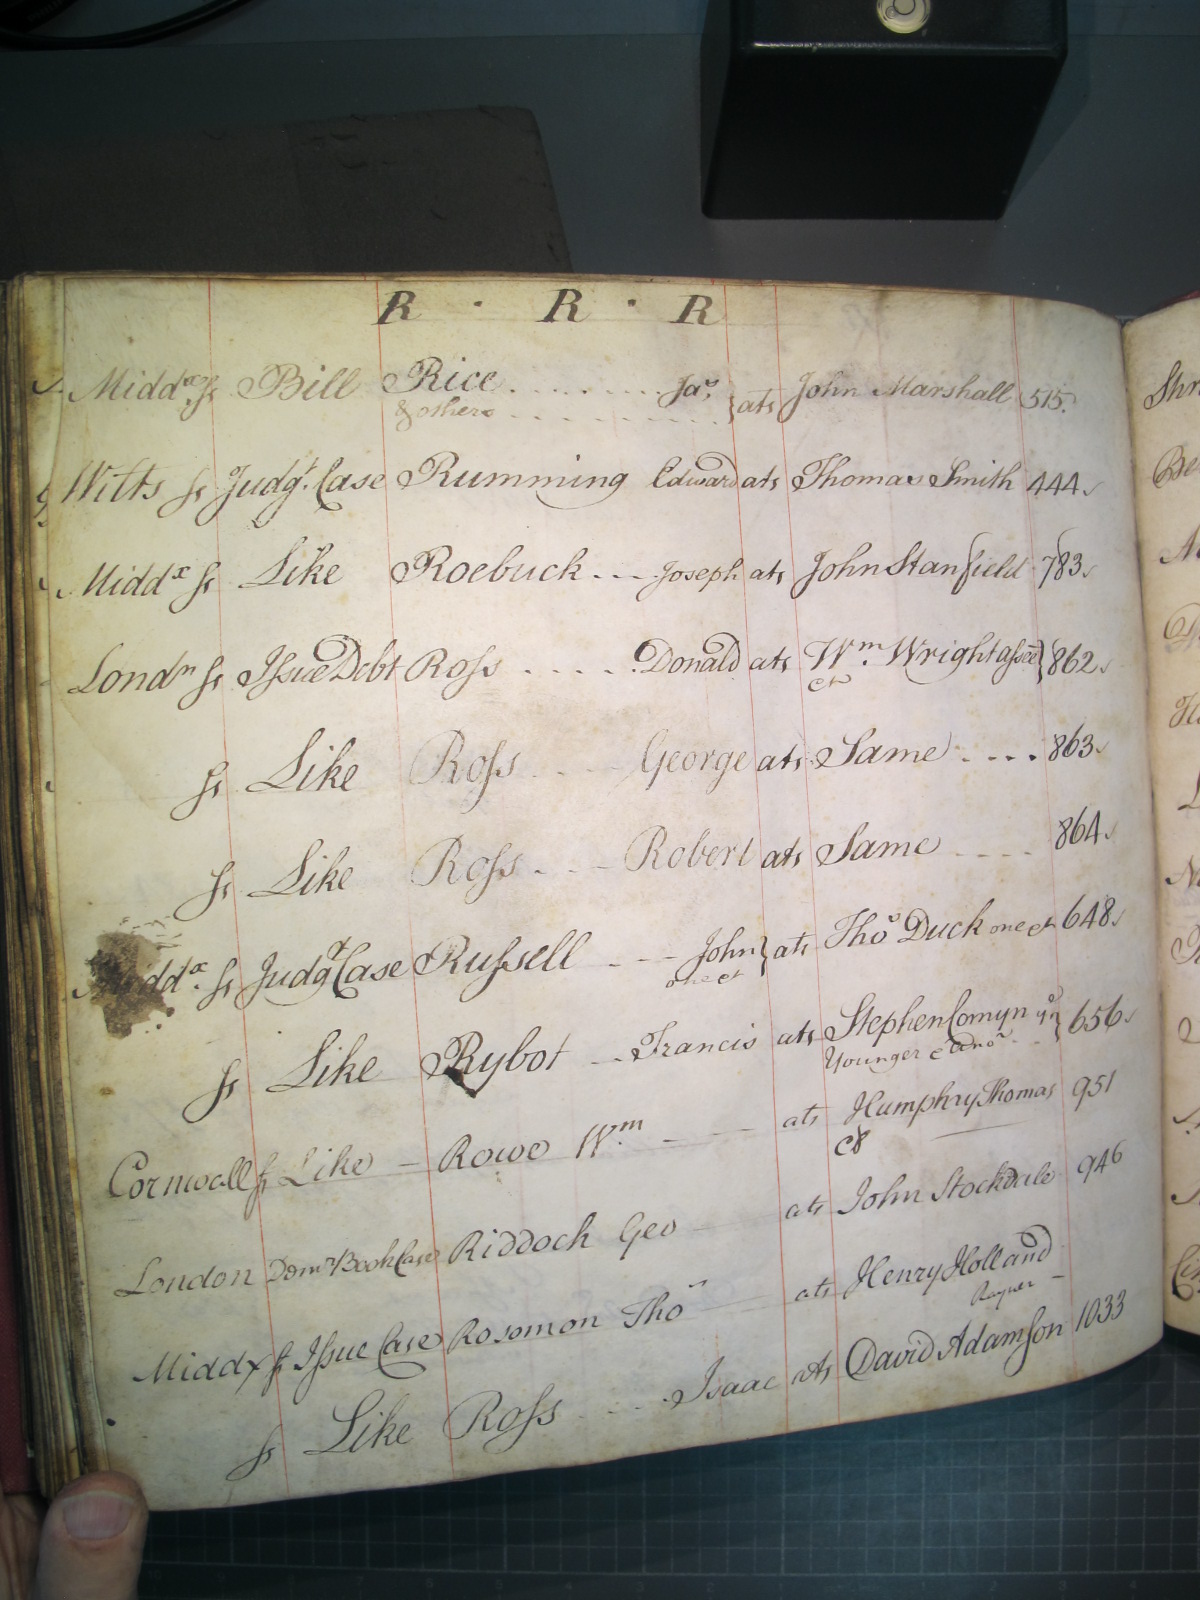 R · R · R
Middx ss Bill Rice Jas ats John Marshall 515
& others
Wilts ss Judgt Case Rumming Edward ats Thomas Smith 444
Middx ss Like Roebuck Joseph ats John Stanfield 783
Londn ss Issue Debt Ross Donald ats Wm Wright assee 862
et
ss Like Ross George ats Same 863
ss Like Ross Robert ats Same 864
Middx ss Judgt Case Russell John ats Thos Duck one et 648
one et
ss Like Rybot Francis ats Stephen Comyn ye 656
Younger
Cornwall ss Like Rowe Wm ats Humphry Thomas 951
London Demr Book Case Riddock Geo ats John Stockdale 946
Middx ss Issue Case Rosomon Thos ats Henry Holland
ss Like Ross Isaac ats David Adamson 1033